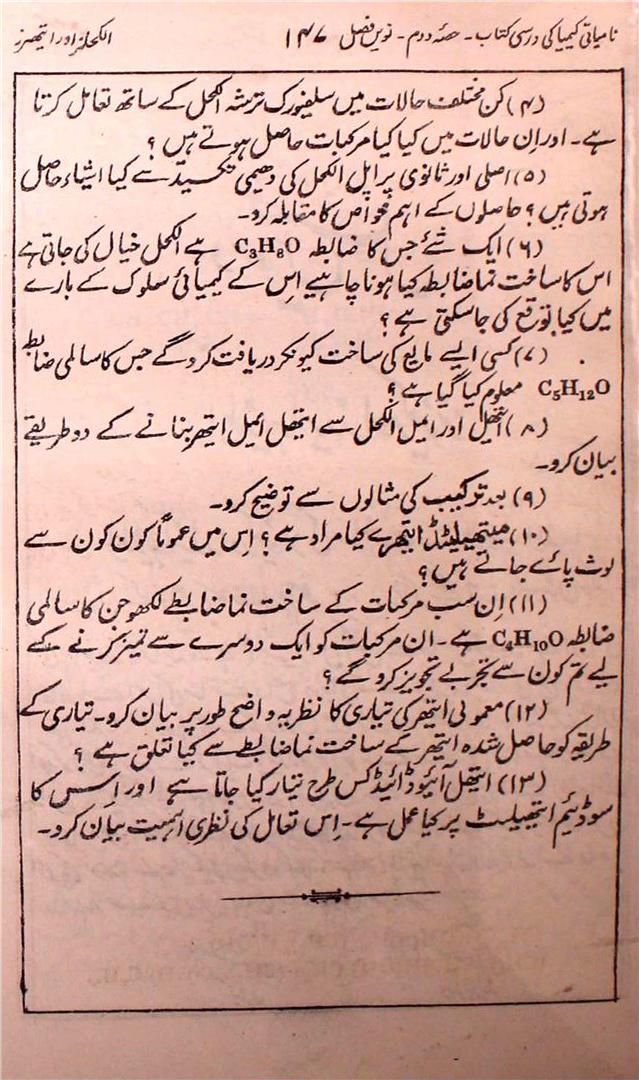 نامیاتی کیمیا کی درسی کتاب - حصہ دوم - نویں فصل ۱۴۷ الکحلز اور ایتھرز
(۴) کن مختلف حالات میں سلفیورک ترشہ الکحل کے ساتھ تعامل کرتا
ہے - اور اِن حالات میں کیا کیا مرکبات حاصل ہوتے ہیں ؟
(۵) اصلی اور ثانوی پراپل الکحل کی دھیمی تکسید سے کیا اشیاء حاصل
ہوتی ہیں ؟ حاصلوں کے اہم خواص کا مقابلہ کرو -
(۶) ایک شئے جس کا ضابطہ C₃H₈O ہے الکحل خیال کی جاتی ہے
اس کا ساخت نما ضابطہ کیا ہونا چاہیے اِس کے کیمیائی سلوک کے بارے
میں کیا توقع کی جاسکتی ہے ؟
(۷) کسی ایسے مایع کی ساخت کیونکر دریافت کروگے جس کا سالمی ضابطہ
C₅H₁₂O معلوم کیا گیا ہے ؟
(۸) ایتھل اور ایمل الکحل سے ایتھل ائیمل ایتھر بنانے کے دو طریقے
بیان کرو -
(۹) بعد ترکیب کی مثالوں سے توضیح کرو -
(۱۰) میتھیلیٹڈ ایتھر سے کیا مراد ہے ؟ اِس میں عموماً کون کون سے
لوث پائے جاتے ہیں ؟
(۱۱) اِن سب مرکبات کے ساخت نما ضابطے لکھو جن کا سالمی
ضابطہ C₄H₁₀O ہے - ان مرکبات کو ایک دوسرے سے تمیز کرنے کے
لیے تم کون سے تجربے تجویز کروگے ؟
(۱۲) معمولی ایتھر کی تیاری کا نظریہ واضح طور پر بیان کرو - تیاری کے
طریقہ کو حاصل شدہ ایتھر کے ساخت نما ضابطے سے کیا تعلق ہے ؟
(۱۳) ایتھل آئیوڈائیڈ کس طرح تیار کیا جاتا ہے اور اِس کا
سوڈیئم ایتھیلیٹ پر کیا عمل ہے - اِس تعامل کی نظری اہمیت بیان کرو -